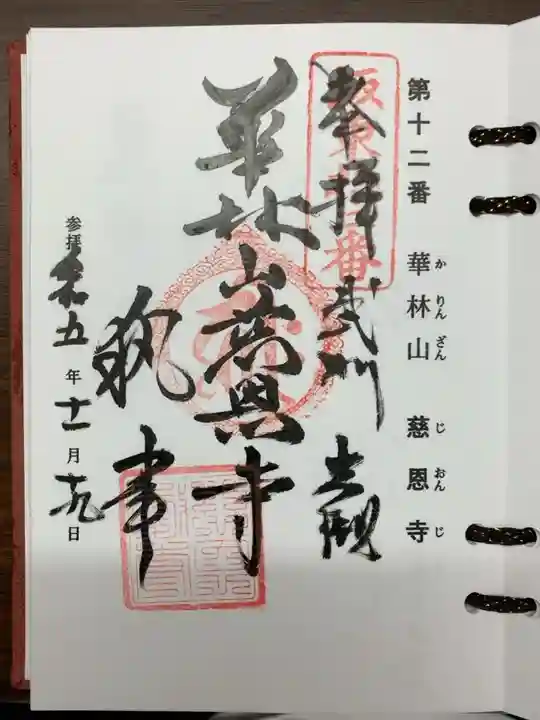 第十二番 華林山 慈恩寺
かりんざん じおんじ
坂東十二番
奉拝 武州 岩槻
華林山慈恩寺
執事
参拝 令和五年十一月十九日